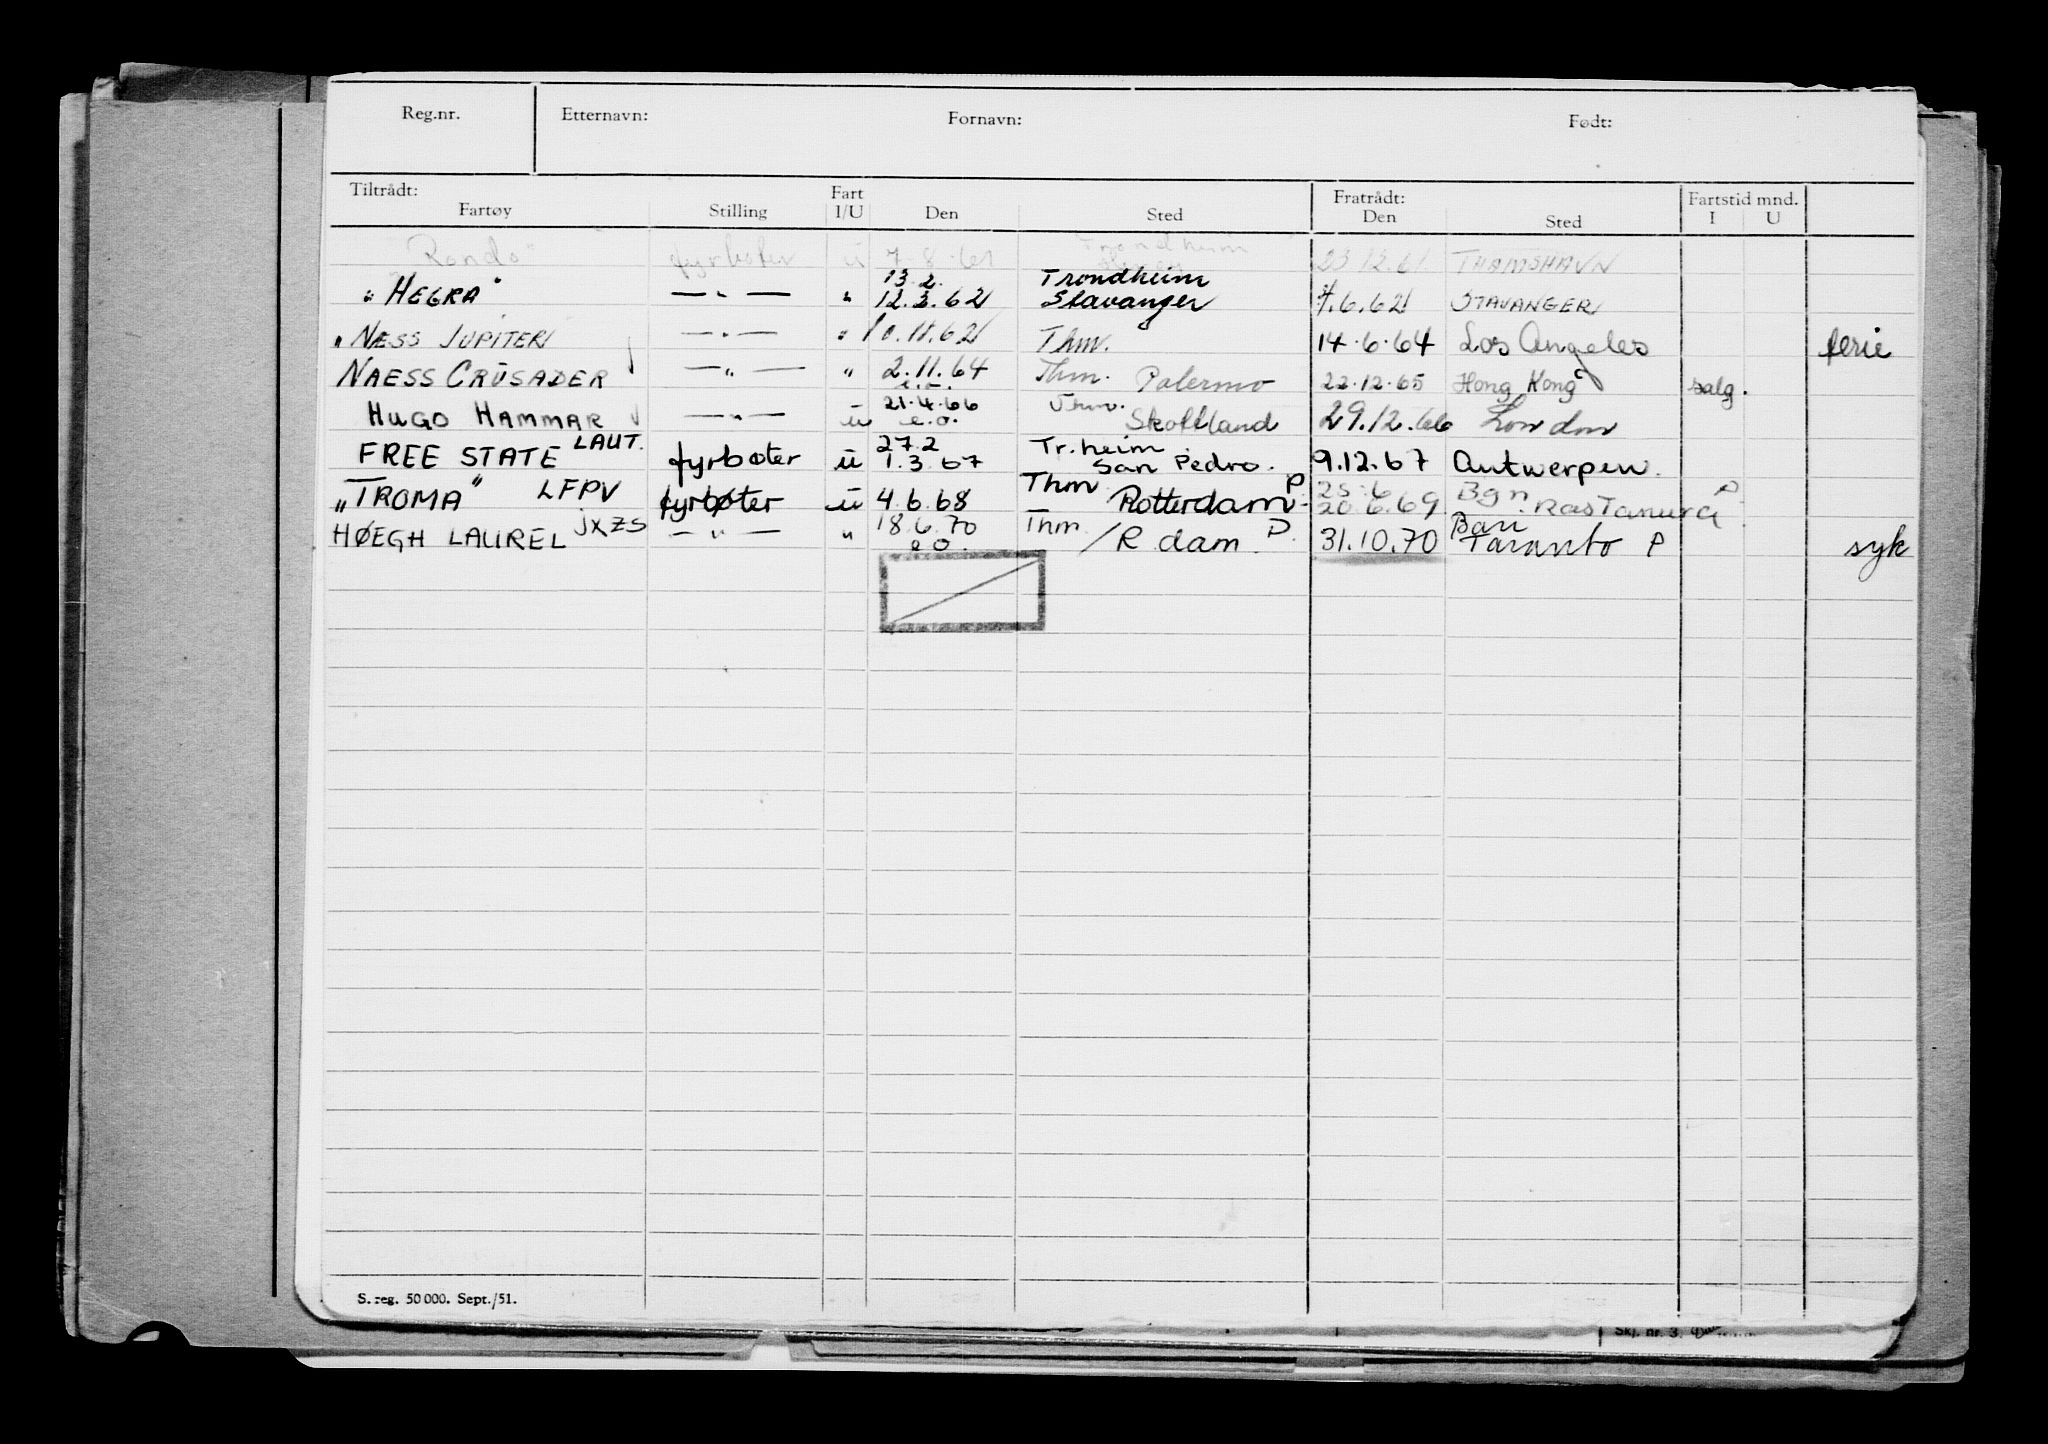 Reg.nr. Etternavn: Fornavn: Født:
Tiltrådt: Fart Fratrådt: Fartstid mnd.
Fartøy Stilling I/U Den Sted Den Sted I U
Rondo" fyrbøter u 7.8.61 Trondheim 23.12.61 THAMSHAVN
13.2. Trondheim
"HEGRA" —"— " 12.3.62 Stavanger 7.6.62 STAVANGER
"NÆSS JUPITER —"— " 10.11.62 Thm. 14.6.64 Los Angeles ferie
NAESS CRUSADER —"— " 2.11.64 Thm. Palermo 22.12.65 Hong Kong salg.
e.o.
21.4.66 Thm.
HUGO HAMMAR —"— u e.o. Skottland 29.12.66 London
LAUT. 27.2 Tr.heim
FREE STATE fyrbøter u 1.3.67 San Pedro. 9.12.67 Antwerpen.
Thm P. 25.6 Bgn P
"TROMA" LFPV fyrbøter u 4.6.68 Rotterdam- 20.6.69 Ras Tanura
JXZS 18.6.70 Thm Bari
HØEGH LAUREL —"— " e o /R dam. P. 31.10.70 Taranto P syk
S. reg. 50 000. Sept./51.
Skj. nr. 3.